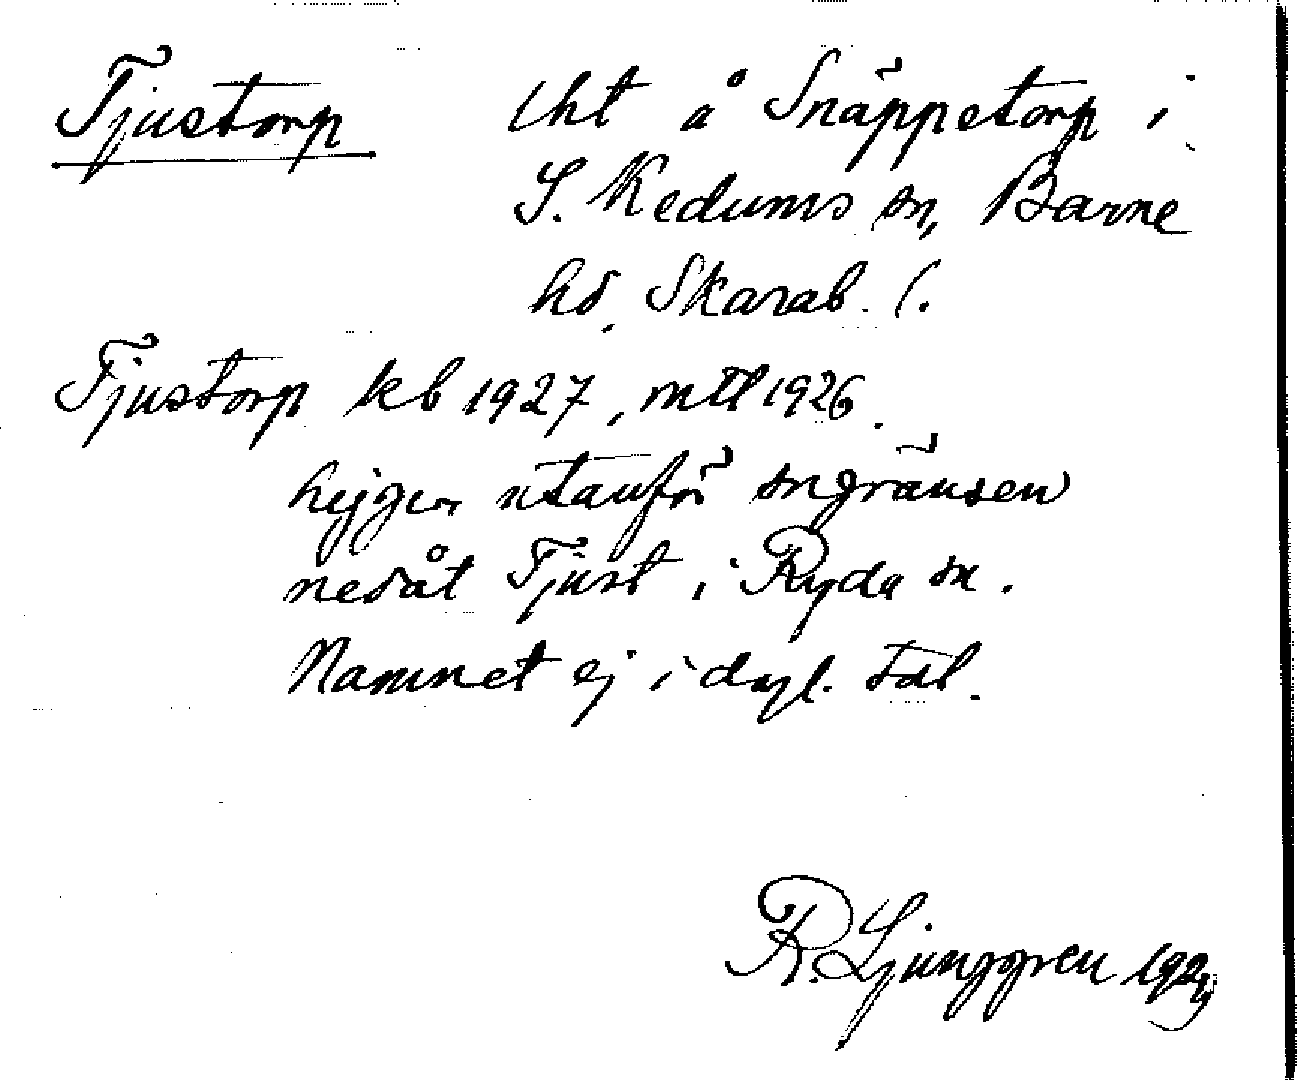 Tjustorp lht å Snäppetorp i
S. Kedums sn, Barne
hd, Skarab. l.
Tjustorp kb 1927, mtl 1926.
ligger utanför sngränsen
nedåt Tjust i Ryda sn.
Namnet ej i dagl. tal.
R. Ljunggren